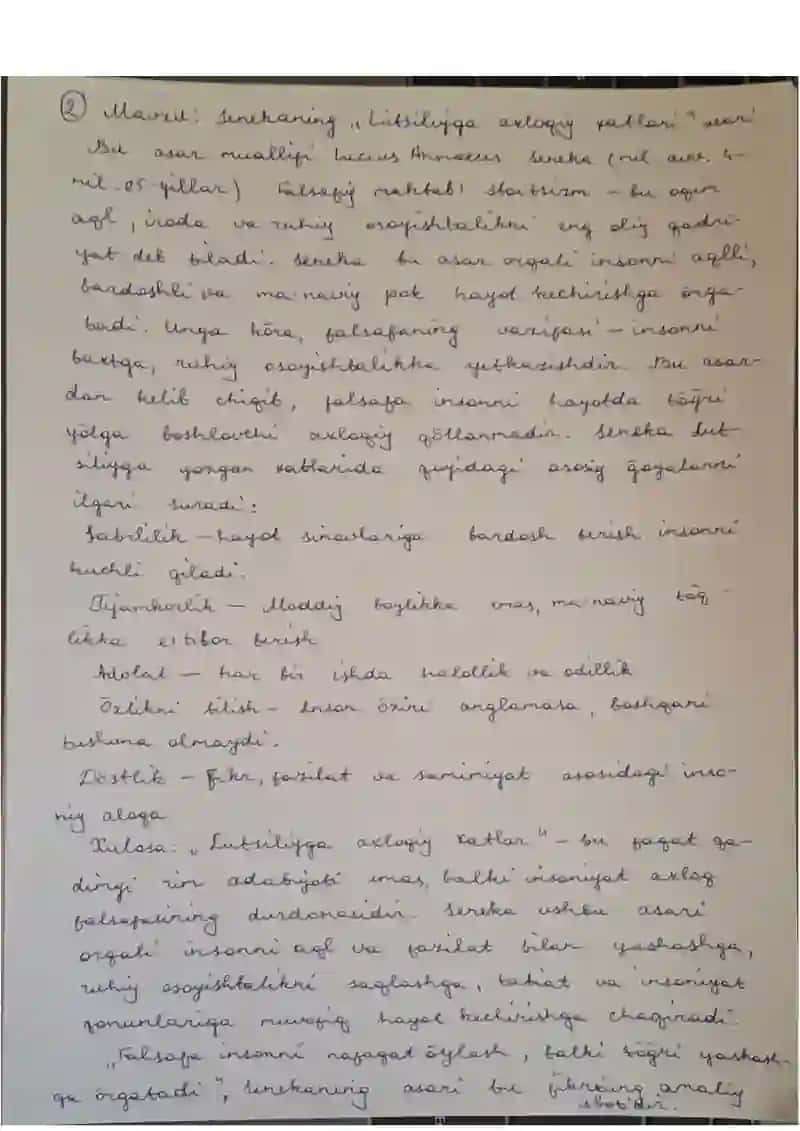 ② Mavzu: Senekaning „Lutsiliyga axloqiy xatlari" asari
Bu asar muallifi Lucius Annaeus Seneka (mil. avv. 4-
mil. 65-yillar) Falsafiy maktabi stoitsizm – bu oqim
aql, iroda va ruhiy osoyishtalikni eng oliy qadri-
yat deb biladi. Seneka bu asar orqali insonni aqlli,
bardoshli va ma'naviy pok hayot kechirishga õrga-
tadi. Unga kõra, falsafaning vazifasi – insonni
baxtga, ruhiy osoyishtalikka yetkazishdir. Bu asar-
dan kelib chiqib, falsafa insonni hayotda tõg̃ri
yõlga boshlovchi axloqiy qõllanmadir. Seneka Lut-
siliyga yozgan xatlarida quyidagi asosiy g̃oyalarni
ilgari suradi:
Sabrlilik – hayot sinovlariga bardosh berish insonni
kuchli qiladi.
Tijamkorlik – Moddiy boylikka emas, ma'naviy boy-
likka e'tibor berish
Adolat – har bir ishda halollik va odillik
Õzlikni bilish – Inson õzini anglamasa, boshqani
tushuna olmaydi.
Dõstlik – Fikr, fazilat va samimiyat asosidagi inso-
niy aloqa
Xulosa: „Lutsiliyga axloqiy xatlar" – bu faqat qa-
dimgi rim adabiyoti emas, balki insoniyat axloq
falsafasining durdonasidir. Seneka ushbu asari
orqali insonni aql va fazilat bilan yashashga,
ruhiy osoyishtalikni saqlashga, tabiat va insoniyat
qonunlariga muvofiq hayot kechirishga chaqiradi.
„Falsafa insonni nafaqat õylash, balki tõg̃ri yashash-
ga õrgatadi", Senekaning asari bu fikrning amaliy
isbotidir.